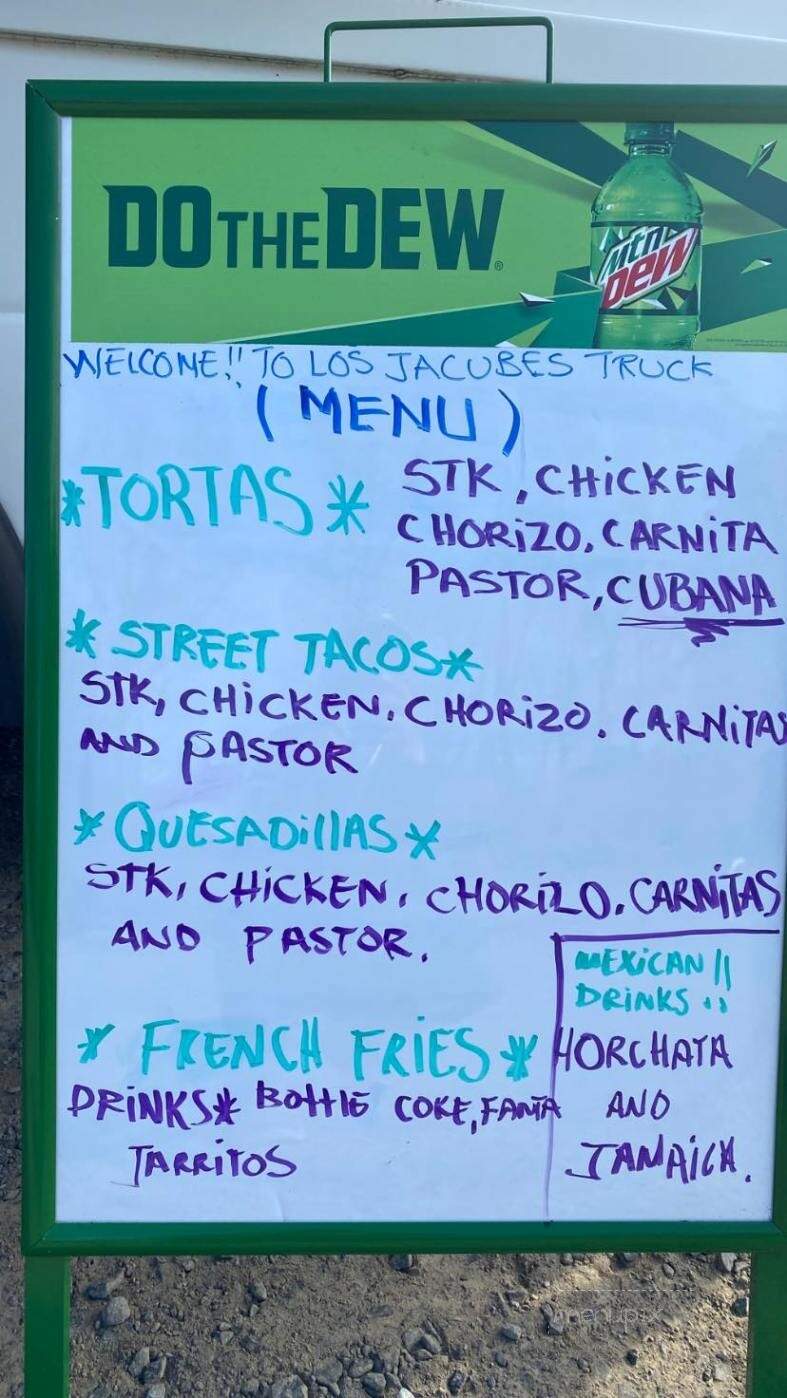 DO THE DEW®
mtn DEW
WELCOME!! TO LOS JACUBES TRUCK
(MENU)
*TORTAS* STK, CHiCKEN
CHORiZO, CARNiTA
PASTOR, CUBANA
* STREET TACOS*
STK, CHiCKEN, CHORiZO, CARNiTAS
AND PASTOR
* QUESADillAS *
STK, CHiCKEN, CHORiZO, CARNiTAS
AND PASTOR.
* FRENCH FRiES *
DRiNKS* BOttlE COKE, FANTA
JARRiTOS
MEXiCAN!!
DRiNKS ::
HORCHATA
AND
JAMAiCA.
menupix